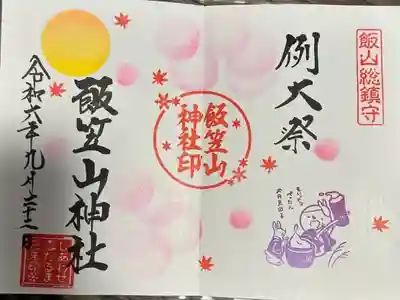 飯山総鎮守
例大祭
飯笠山
神社印
飯笠山神社
令和六年九月二十二日
しあわせ